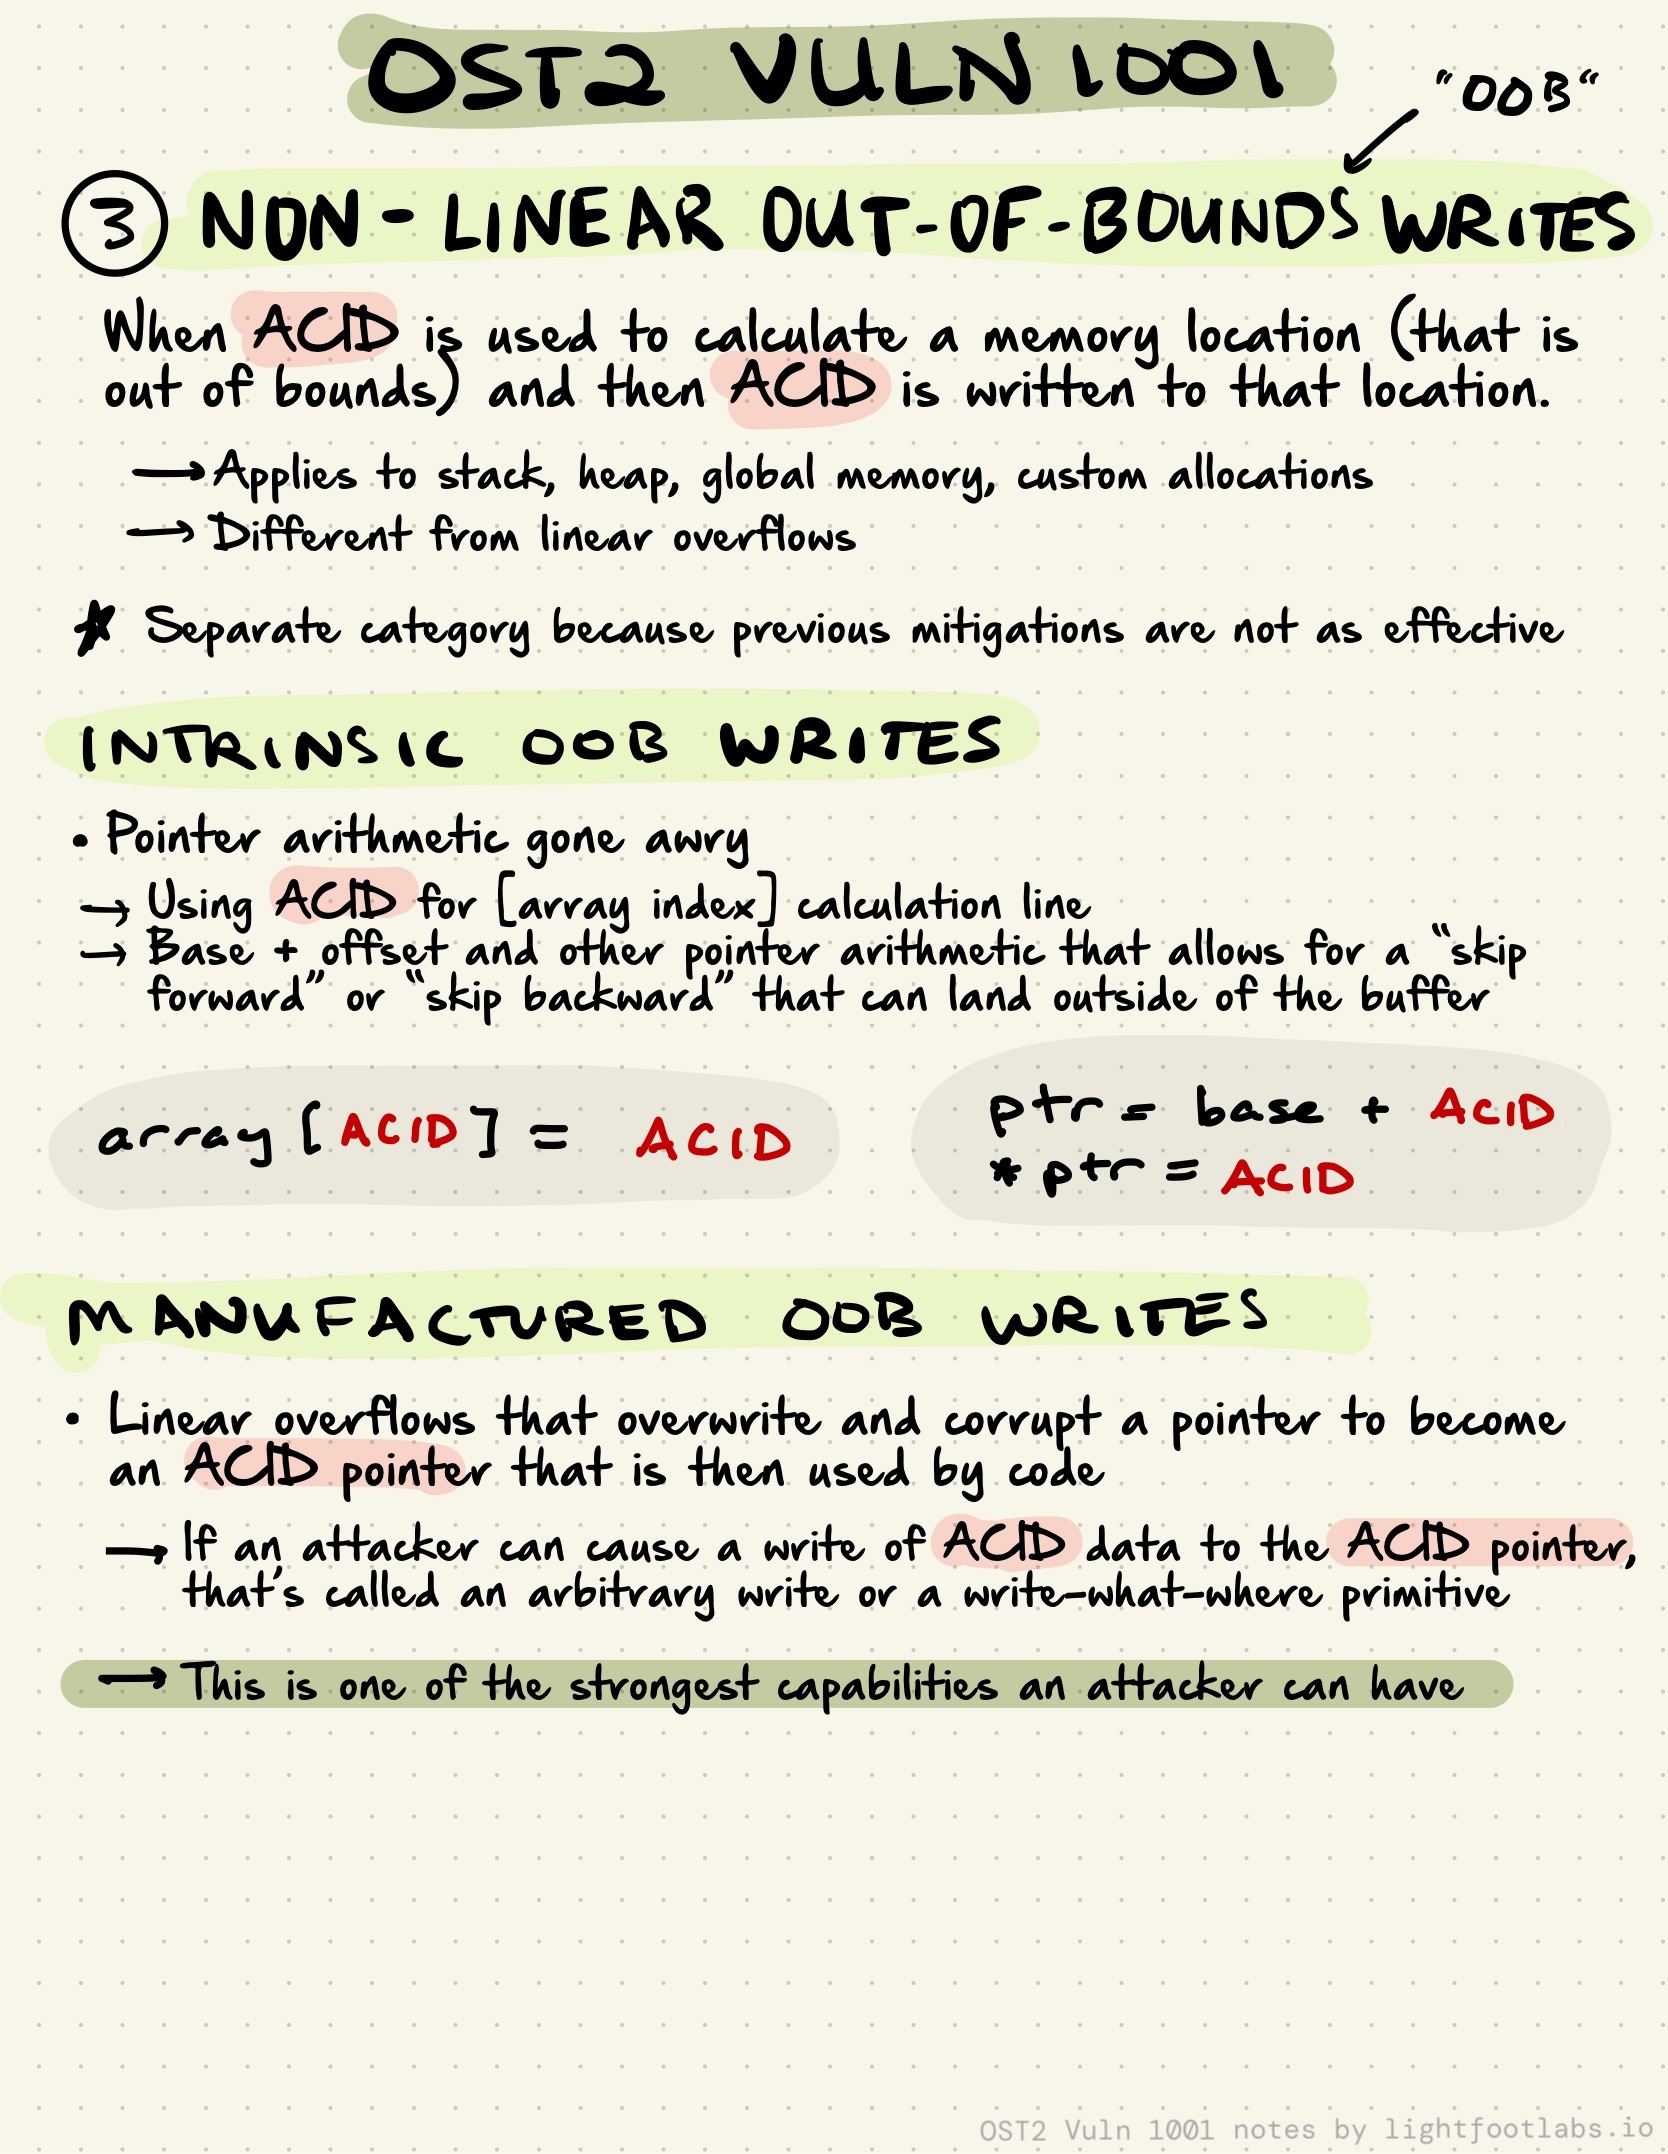 OST2 VULN 1001
"OOB"
3 NON-LINEAR OUT-OF-BOUNDS WRITES
When ACID is used to calculate a memory location (that is
out of bounds) and then ACID is written to that location.
→ Applies to stack, heap, global memory, custom allocations
→ Different from linear overflows
★ Separate category because previous mitigations are not as effective
INTRINSIC OOB WRITES
• Pointer arithmetic gone awry
→ Using ACID for [array index] calculation line
→ Base + offset and other pointer arithmetic that allows for a "skip
forward" or "skip backward" that can land outside of the buffer
array [ACID] = ACID
ptr = base + ACID
*ptr = ACID
MANUFACTURED OOB WRITES
• Linear overflows that overwrite and corrupt a pointer to become
an ACID pointer that is then used by code
→ If an attacker can cause a write of ACID data to the ACID pointer,
that's called an arbitrary write or a write-what-where primitive
→ This is one of the strongest capabilities an attacker can have
OST2 Vuln 1001 notes by lightfootlabs.io